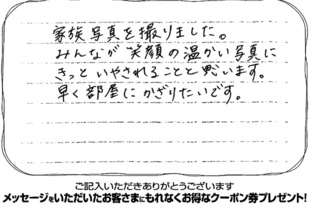 家族写真を撮りました。
みんなが笑顔の温かい写真に
きっといやされることと思います。
早く部屋にかざりたいです。
ご記入いただきありがとうございます
メッセージをいただいたお客さまにもれなくお得なクーポン券プレゼント!